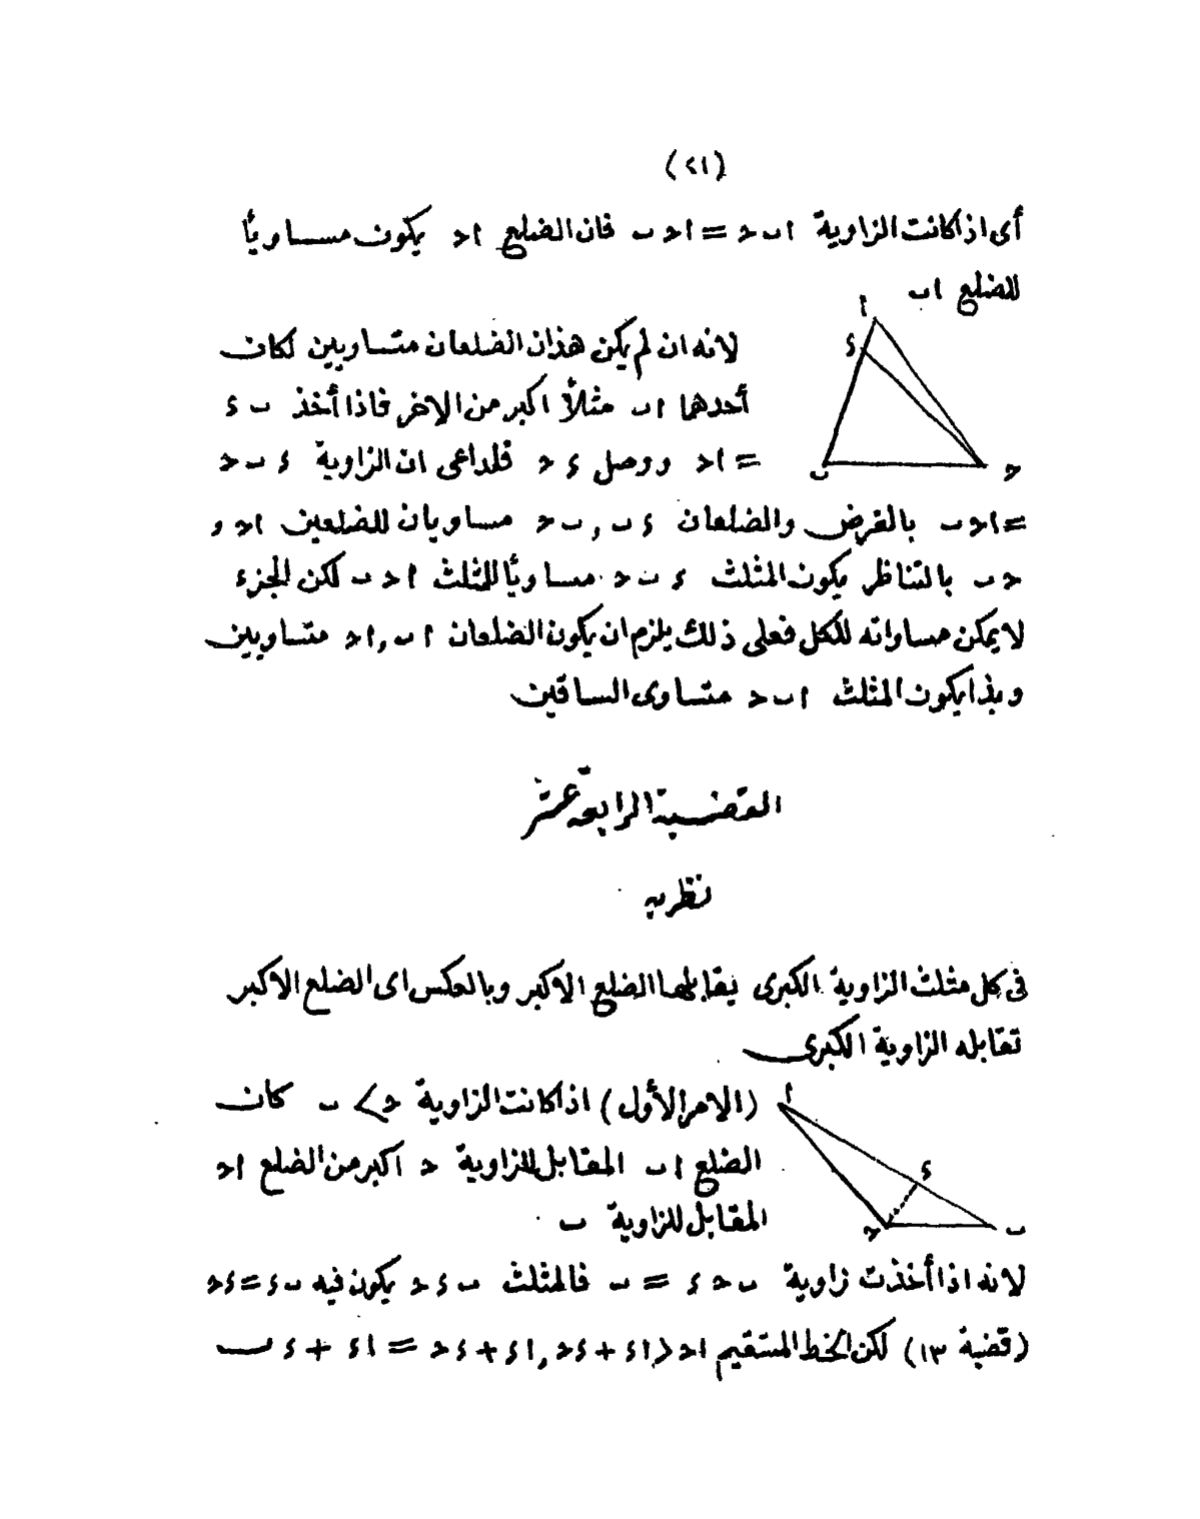 (٢١)
أى اذا كانت الزاوية ا ب ح = ا ح ب فان الضلع ا ح يكون مساويًا
للضلع ا ب
ا
ء
ب
ح
لانه ان لم يكن هذان الضلعان متساويين لكان
أحدهما ا ب مثلاً اكبر من الاخر فاذا أخذ ب ء
= ا ح ووصل ء ح فلداعى ان الزاوية ء ب ح
= ا ح ب بالفرض والضلعان ء ب , ب ح مساويان للضلعين ا ح و
ح ب بالتناظر يكون المثلث ء ب ح مساويًا للمثلث ا ح ب لكن الجزء
لا يمكن مساواته للكل فعلى ذلك يلزم ان يكون الضلعان ا ب , ا ح متساويين
وبذا يكون المثلث ا ب ح متساوى الساقين
القضية الرابعة عشر
نظرية
فى كل مثلث الزاوية الكبرى يقابلها الضلع الاكبر وبالعكس اى الضلع الاكبر
تقابله الزاوية الكبرى
ا
ء
ح
ب
(الامر الأول) اذا كانت الزاوية ح > ب كان
الضلع ا ب المقابل للزاوية ح اكبر من الضلع ا ح
المقابل للزاوية ب
لانه اذا أخذت زاوية ب ح ء = ب فالمثلث ب ء ح يكون فيه ب ء = ء ح
(قضية ١٣) لكن الخط المستقيم ا ح < ا ء + ء ح , ا ء + ء ح = ا ء + ء ب